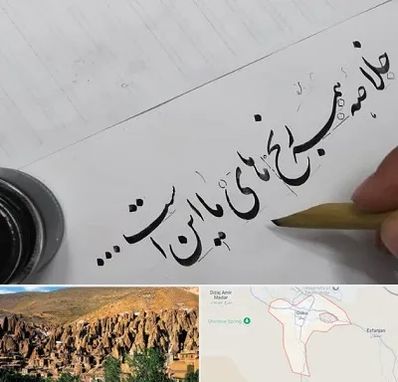 خلاصه همه رنج های ما این است...
Amir
Madar
Spring
Esfanjan